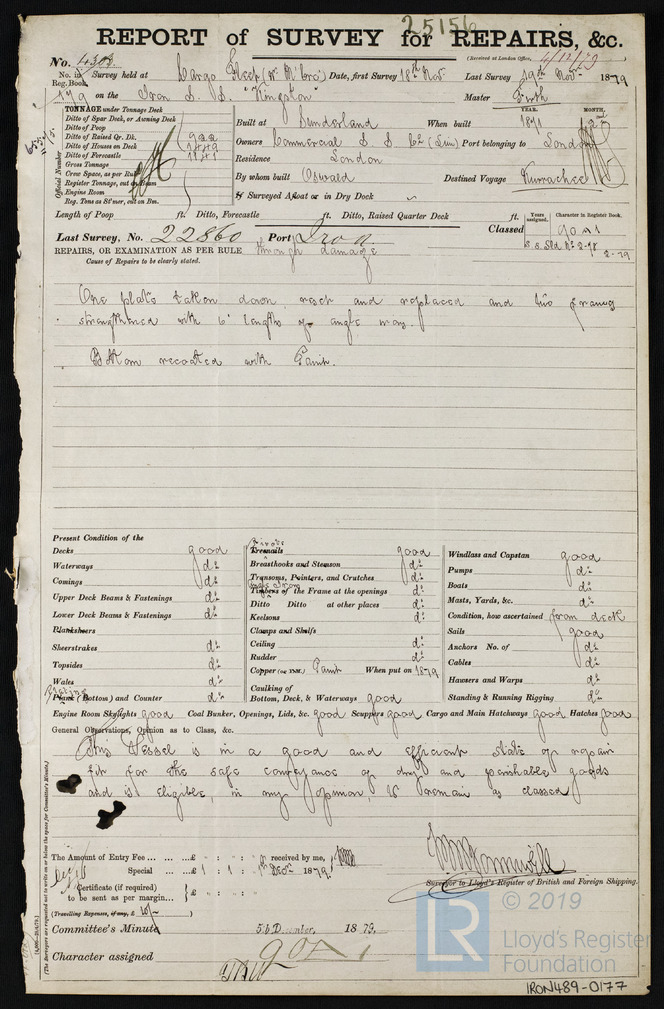 25156
REPORT of SURVEY for REPAIRS, &c.
(Received at London Office, 4/12/79
No. 4303. Survey held at Cargo Fleet (Nr M'bro) Date, first Survey 18th Nov. Last Survey 29th Nov. 1879
No. in Reg. Book. 179 on the Iron S. S. "Kingston" Master Firth
TONNAGE under Tonnage Deck
Ditto of Spar Deck, or Awning Deck
Ditto of Poop
Ditto of Raised Qr. Dk. 922
Ditto of Houses on Deck 1449
Ditto of Forecastle 1141
Gross Tonnage
Crew Space, as per Rule
Register Tonnage, cut on Beam
Engine Room
Reg. Tons as St'mer, cut on Bm.
Official Number
Built at Sunderland When built YEAR. 1871 MONTH. 2
Owners Commercial S S Co (Lim) Port belonging to London
Residence London
By whom built Oswald Destined Voyage Kurrachee
If Surveyed Afloat or in Dry Dock
Length of Poop ft. Ditto, Forecastle ft. Ditto, Raised Quarter Deck ft.
Years assigned. Character in Register Book.
Classed 90 A1
S.S. Sld No 2-78
2-79
Last Survey, No. 22860 Port Iron
REPAIRS, OR EXAMINATION AS PER RULE through damage
Cause of Repairs to be clearly stated.
One plate taken down, reset and replaced and two frames
strengthened with 6' lengths of angle
Bottom recoated with Paint.
Present Condition of the
Decks good
Waterways do
Comings do
Upper Deck Beams & Fastenings do
Lower Deck Beams & Fastenings do
Planksheers
Sheerstrakes do
Topsides do
Wales do
Plating
Plank (Bottom) and Counter do
Rivets
Treenails good
Breasthooks and Stemson do
Transoms, Pointers, and Crutches do
Angle Iron
Timbers of the Frame at the openings do
Ditto Ditto at other places do
Keelsons do
Clamps and Shelfs
Ceiling do
Rudder do
Copper (or Y.M.) Paint When put on 1879
Caulking of
Bottom, Deck, & Waterways good
Windlass and Capstan good
Pumps do
Boats do
Masts, Yards, &c. do
Condition, how ascertained from deck
Sails good
Anchors No. of do
Cables do
Hawsers and Warps do
Standing & Running Rigging do
Engine Room Skylights good Coal Bunker, Openings, Lids, &c. good Scuppers good Cargo and Main Hatchways Good Hatches good
General Observations, Opinion as to Class, &c.
This Vessel is in a good and efficient state of repair
fit for the safe conveyance of dry and perishable goods
and is eligible, in my opinion, to remain as classed
(The Surveyors are requested not to write on or below the space for Committee's Minute.)
The Amount of Entry Fee ... ... ...£ : : received by me,
Special ... ...£ 1 : 1 : 1st Decr 1879.
Certificate (if required)
to be sent as per margin... £
(Travelling Expenses, if any, £
Surveyor to Lloyd's Register of British and Foreign Shipping.
Committee's Minute 5th December, 1879.
Character assigned 90 A1
© 2019
LR
Lloyd's Register
Foundation
IRON489-0177